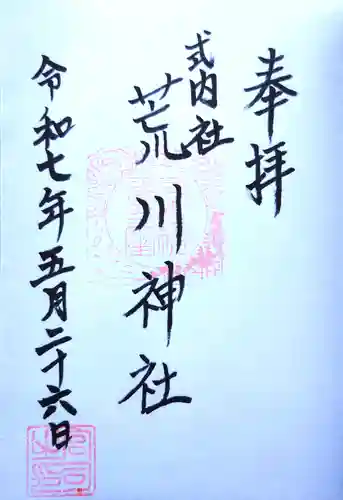 奉拝
式内社
荒川神社
令和七年五月二十六日